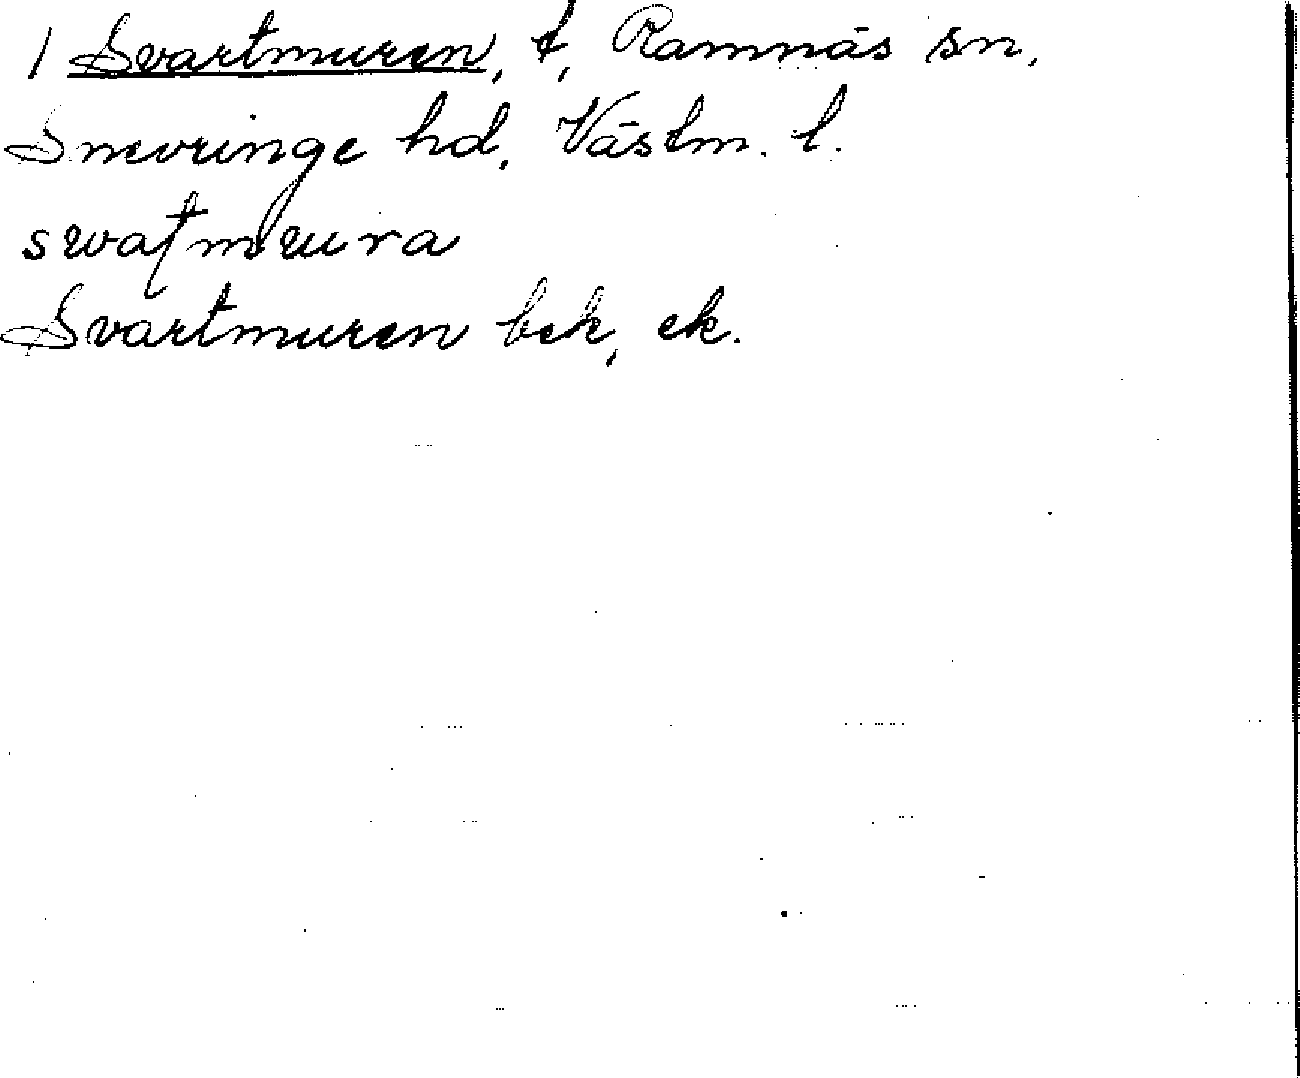 1 Svartmuren, t, Ramnäs sn,
Snevringe hd, Västm. l.
Svartmuren bek, ek.